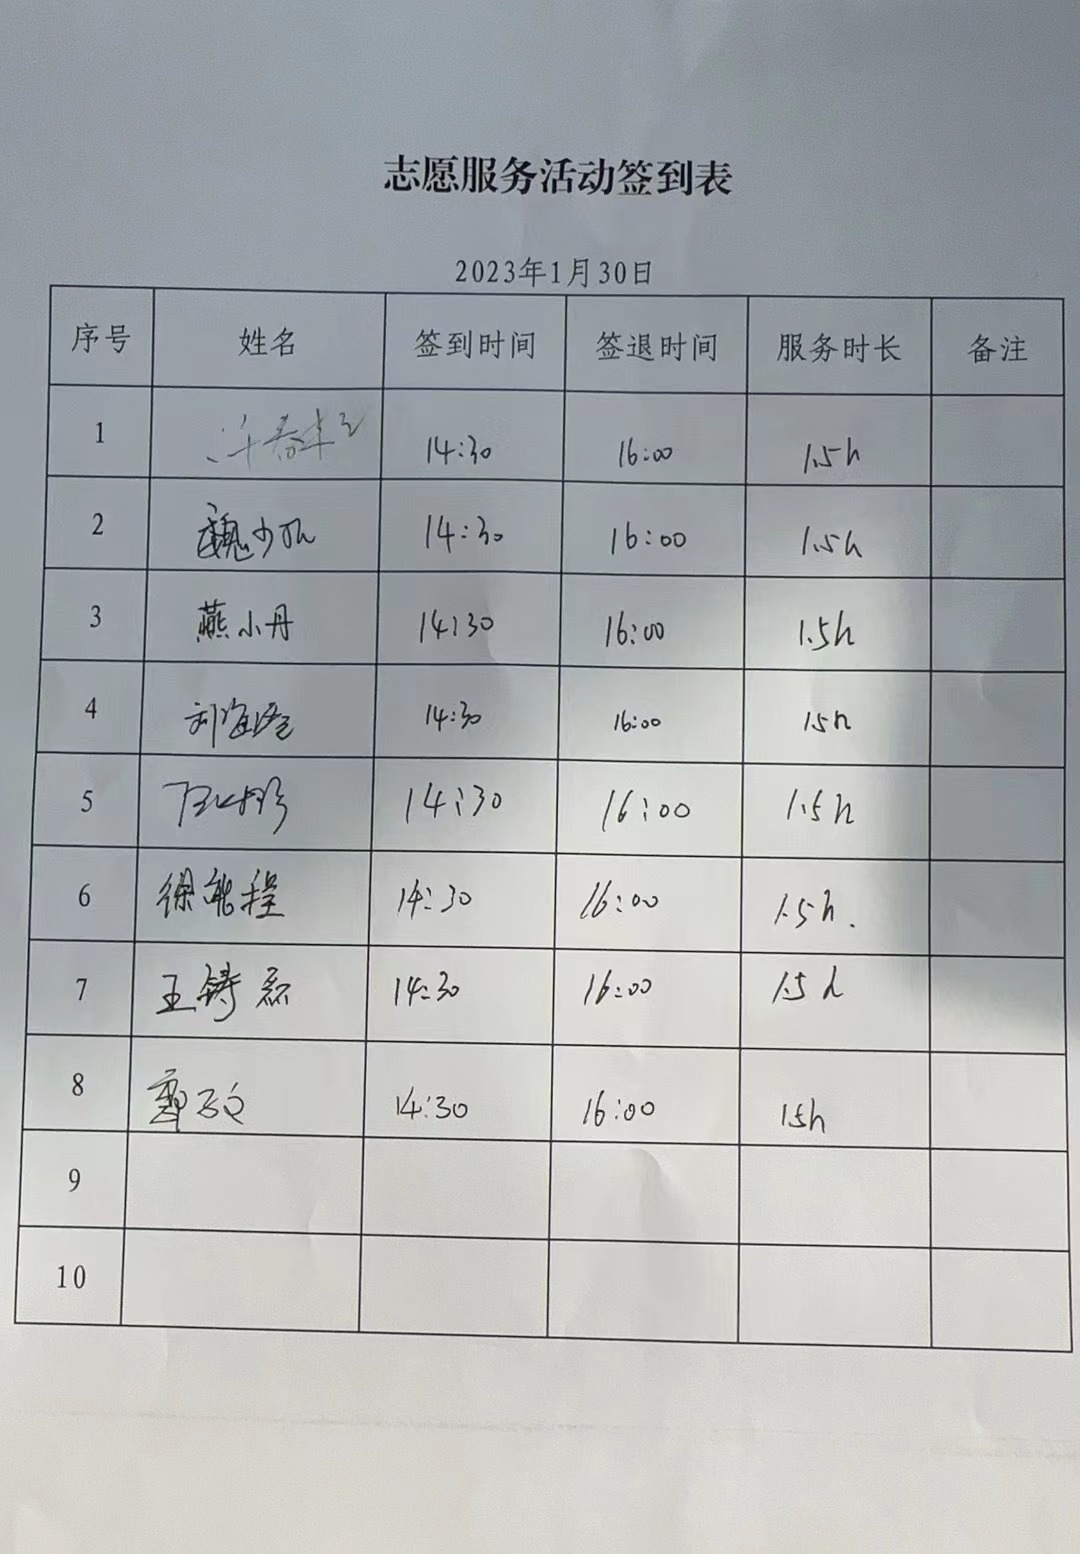 志愿服务活动签到表
2023年1月30日
序号 姓名 签到时间 签退时间 服务时长 备注
1 14:30 16:00 1.5h
2 魏少 14:30 16:00 1.5h
3 燕小丹 14:30 16:00 1.5h
4 刘海 14:30 16:00 1.5h
5 14:30 16:00 1.5h
6 徐能程 14:30 16:00 1.5h.
7 王铸磊 14:30 16:00 1.5h
8 14:30 16:00 1.5h
9
10